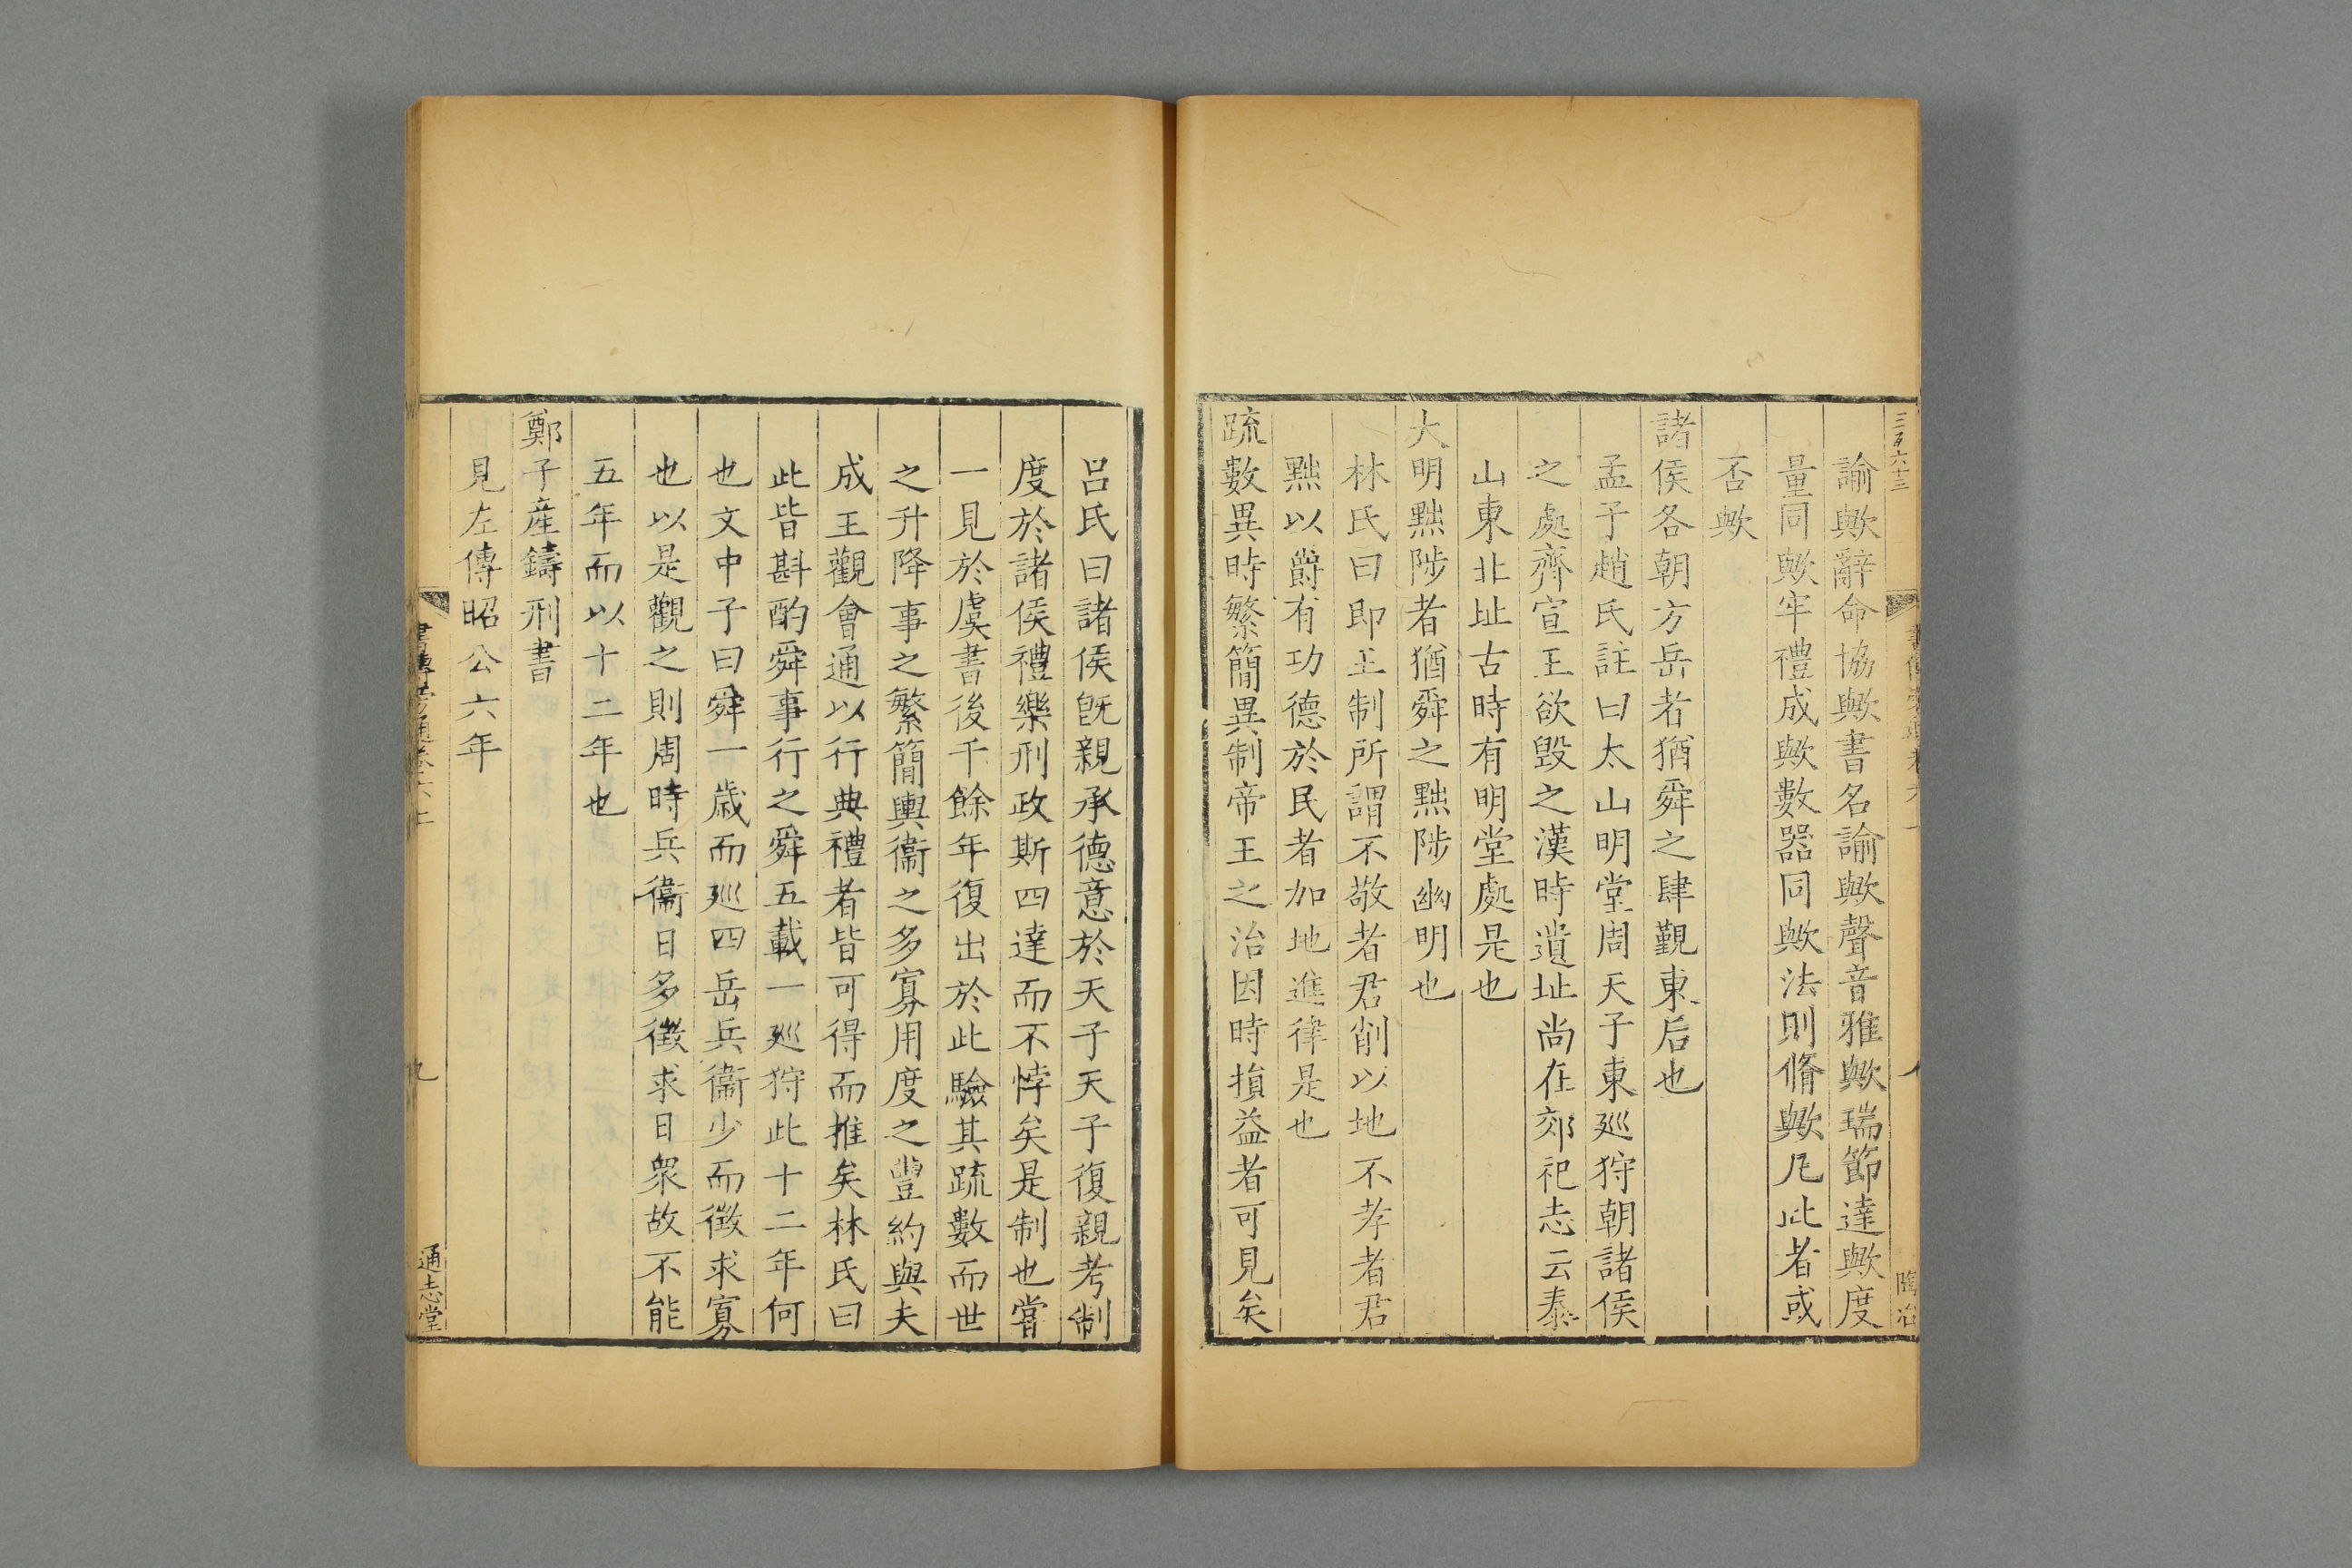 三百六十三
諭歟辭命協歟書名諭歟聲音雅歟瑞節達歟度
量同歟牢禮成歟數器同歟法則脩歟凡此者或
否歟
諸侯各朝方岳者猶舜之肆覲東后也
孟子趙氏註曰太山明堂周天子東廵狩朝諸侯
之處齊宣王欲毁之漢時遺址尚在郊祀志云泰
山東北址古時有明堂處是也
大明黜陟者猶舜之黜陟幽明也
林氏曰即王制所謂不敬者君削以地不孝者君
黜以爵有功德於民者加地進律是也
疏數異時繁簡異制帝王之治因時損益者可見矣
陶冶
呂氏曰諸侯旣親承德意於天子天子復親考制
度於諸侯禮樂刑政斯四達而不悖矣是制也甞
一見於虞書後千餘年復出於此驗其疏數而世
之升降事之繁簡輿衞之多寡用度之豐約與夫
成王觀會通以行典禮者皆可得而推矣林氏曰
此皆斟酌舜事行之舜五載一廵狩此十二年何
也文中子曰舜一歳而廵四岳兵衞少而徵求寡
也以是觀之則周時兵衞日多徵求日衆故不能
五年而以十二年也
鄭子產鑄刑書
見左傳昭公六年
書傳旁通卷六上
九
通志堂